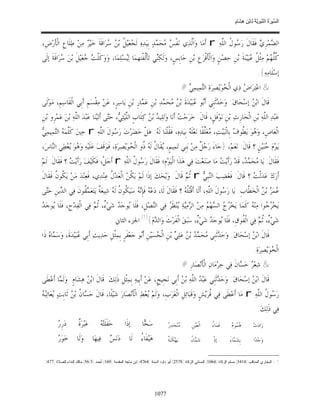 السيرة النبوية لابن هشام
الضَّمْرِيَّ فَقَالَ رَسُولُ اللَّهِ r أَمَا وَالَّذِي نَفْسُ مُحَمَّدٍ بِيَدِهِ لَجُعَيْلُ بْنُ سُرَاقَةَ خَيْرٌ مِنْ طِلَاعِ الْأَرْضِ،
كُلُّهُمْ مِثْلُ عُيَيْنَةَ بْنِ حِصْنٍ وَالْأَقْرَعِ بْنِ حَابِسٍ، وَلَكِنِّي تَأَلَّفْتهمَا لِيُسْلِمَا، وَوَكَلْتُ جُعَيْلَ بْنَ سُرَاقَةَ إلَى
إسْلَامِهِ).
# اعْتِرَاضُ ذِي الْخُوَيْصِرَةِ التَّمِيمِيِّ #
قَالَ ابْنُ إسْحَاقَ وَحَدَّثَنِي أَبُو عُبَيْدَةَ بْنُ مُحَمَّدِ بْنِ عَمَّارِ بْنِ يَاسِرٍ، عَنْ مِقْسَمٍ أَبِي الْقَاسِمِ، مَوْلَى
عَبْدِ اللَّهِ بْنِ الْحَارِثِ بْنِ نَوْفَلٍ، قَالَ خَرَجْت أَنَا وَتَلِيدُ بْنُ كِلَابٍ اللَّيْثِيُّ، حَتَّى أَتَيْنَا عَبْدَ اللَّهِ بْنَ عَمْرِو بْنِ
الْعَاصِ، وَهُوَ يَطُوفُ بِالْبَيْتِ، مُعَلِّقًا نَعْلَهُ بِيَدِهِ، فَقُلْنَا لَهُ هَلْ حَضَرْت رَسُولَ اللَّهِ r حِينَ كَلَّمَهُ التَّمِيمِيُّ
يَوْمَ حُنَيْنٍ ؟ قَالَ نَعَمْ، (جَاءَ رَجُلٌ مِنْ بَنِي تَمِيمٍ، يُقَالُ لَهُ ذُو الْخُوَيْصِرَةِ، فَوَقَفَ عَلَيْهِ وَهُوَ يُعْطِي النَّاسَ،
فَقَالَ يَا مُحَمَّدُ، قَدْ رَأَيْتُ مَا صَنَعْت فِي هَذَا الْيَوْمِ، فَقَالَ رَسُولُ اللَّهِ r أَجَلْ، فَكَيْفَ رَأَيْت؟ فَقَالَ لَمْ
أَرَكَ عَدَلْتَ ؟ قَالَ فَغَضِبَ النَّبِيُّ r ثُمَّ قَالَ وَيْحَكَ إذَا لَمْ يَكُنْ الْعَدْلُ عِنْدِي، فَعِنْدَ مَنْ يَكُونُ فَقَالَ
عُمَرُ بْنُ الْخَطَّابِ يَا رَسُولَ اللَّهِ، أَلَا أَقْتُلُهُ ؟ فَقَالَ لَا، دَعْهُ فَإِنَّهُ سَيَكُونُ لَهُ شِيعَةٌ يَتَعَمَّقُونَ فِي الدِّينِ حَتَّى
يَخْرُجُوا مِنْهُ كَمَا يَخْرُجُ السَّهْمُ مِنْ الرَّمِيَّةِ يُنْظَرُ فِي النَّصْلِ، فَلَا يُوجَدُ شَيْءٌ، ثُمَّ فِي الْقِدْحِ، فَلَا يُوجَدُ
شَيْءٌ، ثُمَّ فِي الْفُوقِ، فَلَا يُوجَدُ شَيْءٌ، سَبَقَ الْفَرْثَ وَالدَّمَ)(1) الجزء الثاني
قَالَ ابْنُ إسْحَاقَ وَحَدَّثَنِي مُحَمَّدُ بْنُ عَلِيِّ بْنِ الْحُسَيْنِ أَبُو جَعْفَرٍ بِمِثْلِ حَدِيثِ أَبِي عُبَيْدَةَ، وَسَمَّاهُ ذَا
الْخُوَيْصِرَةِ
# شِعْرُ حَسَّانَ فِي حِرْمَانِ الْأَنْصَارِ #
قَالَ ابْنُ إسْحَاقَ وَحَدَّثَنِي عَبْدُ اللَّهِ بْنُ أَبِي نَجِيحٍ، عَنْ أَبِيهِ بِمِثْلِ ذَلِكَ قَالَ ابْنُ هِشَامٍ وَلَمَّا أَعْطَى
رَسُولُ اللَّهِ r مَا أَعْطَى فِي قُرَيْشٍ وَقَبَائِلِ الْعَرَبِ، وَلَمْ يُعْطِ الْأَنْصَارَ شَيْئًا، قَالَ حَسَّانُ بْنُ ثَابِتٍ يُعَاتِبُهُ
فِي ذَلِكَ
زَادَتْ هُمُومٌ فَمَاءُ الْعَيْنِ مُنْحَدِرُ سَحًّا إذَا حَفَلَتْهُ عَبْرَةٌ دِرَرُ
وَجْدًا بِشَمَّاءَ إذْ شَمَّاءُ بَهْكَنَةٌ هَيْفَاءُ لَا دَنَسٌ فِيهَا وَلَا خَوَرُ
1077